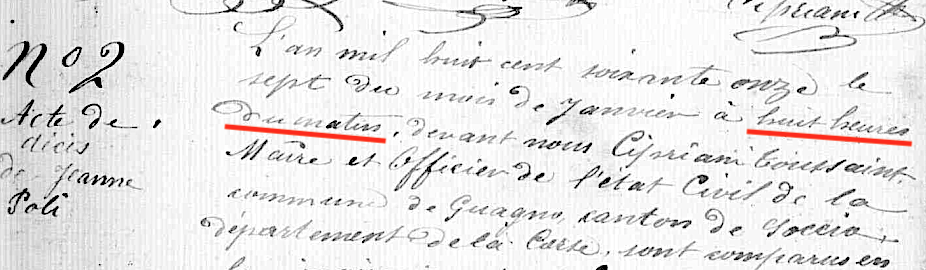 Cipriani
N° 2
Acte de
décis
de Jeanne
Poli
L'an mil huit cent soixante onze le
sept du mois de Janvier à huit heures
du matin, devant nous Cipriani Toussaint
Maire et Officier de l'état Civil de la
commune de Guagno, canton de Soccia,
département de la Corse, sont comparus en